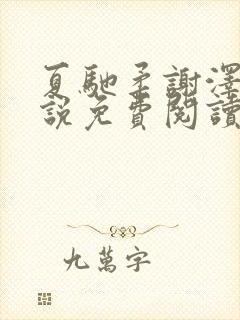 夏馳柔謝澤
說免費閱讀
九萬字